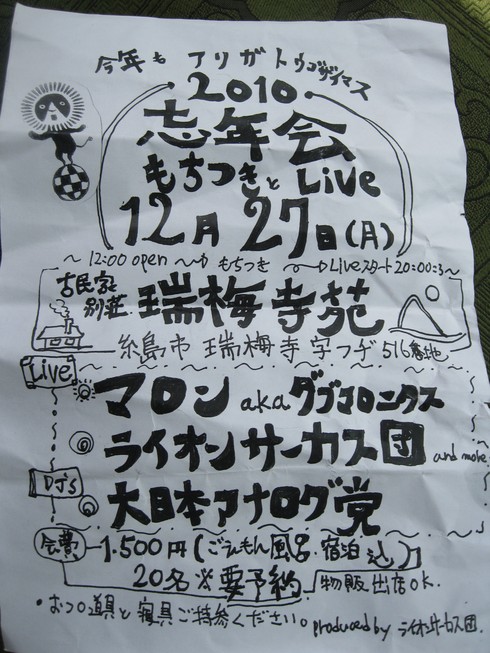 今年も アリガトウゴザイマス
2010
忘年会
もちつきと Live
12月 27日(月)
~12:00 open ~ もちつき ~ Liveスタート20:00~
古民家と
別荘 瑞梅寺苑
糸島市 瑞梅寺字フヂ516番地
Live
マロン aka ダブマロニクス
ライオンサーカス団 and more
DJ's
大日本アナログ党
会費 1.500円(ごえもん風呂・宿泊込)
20名※要予約 物販出店OK.
・おつつ道具と寝具ご持参ください。 produced by ライオンサーカス団.